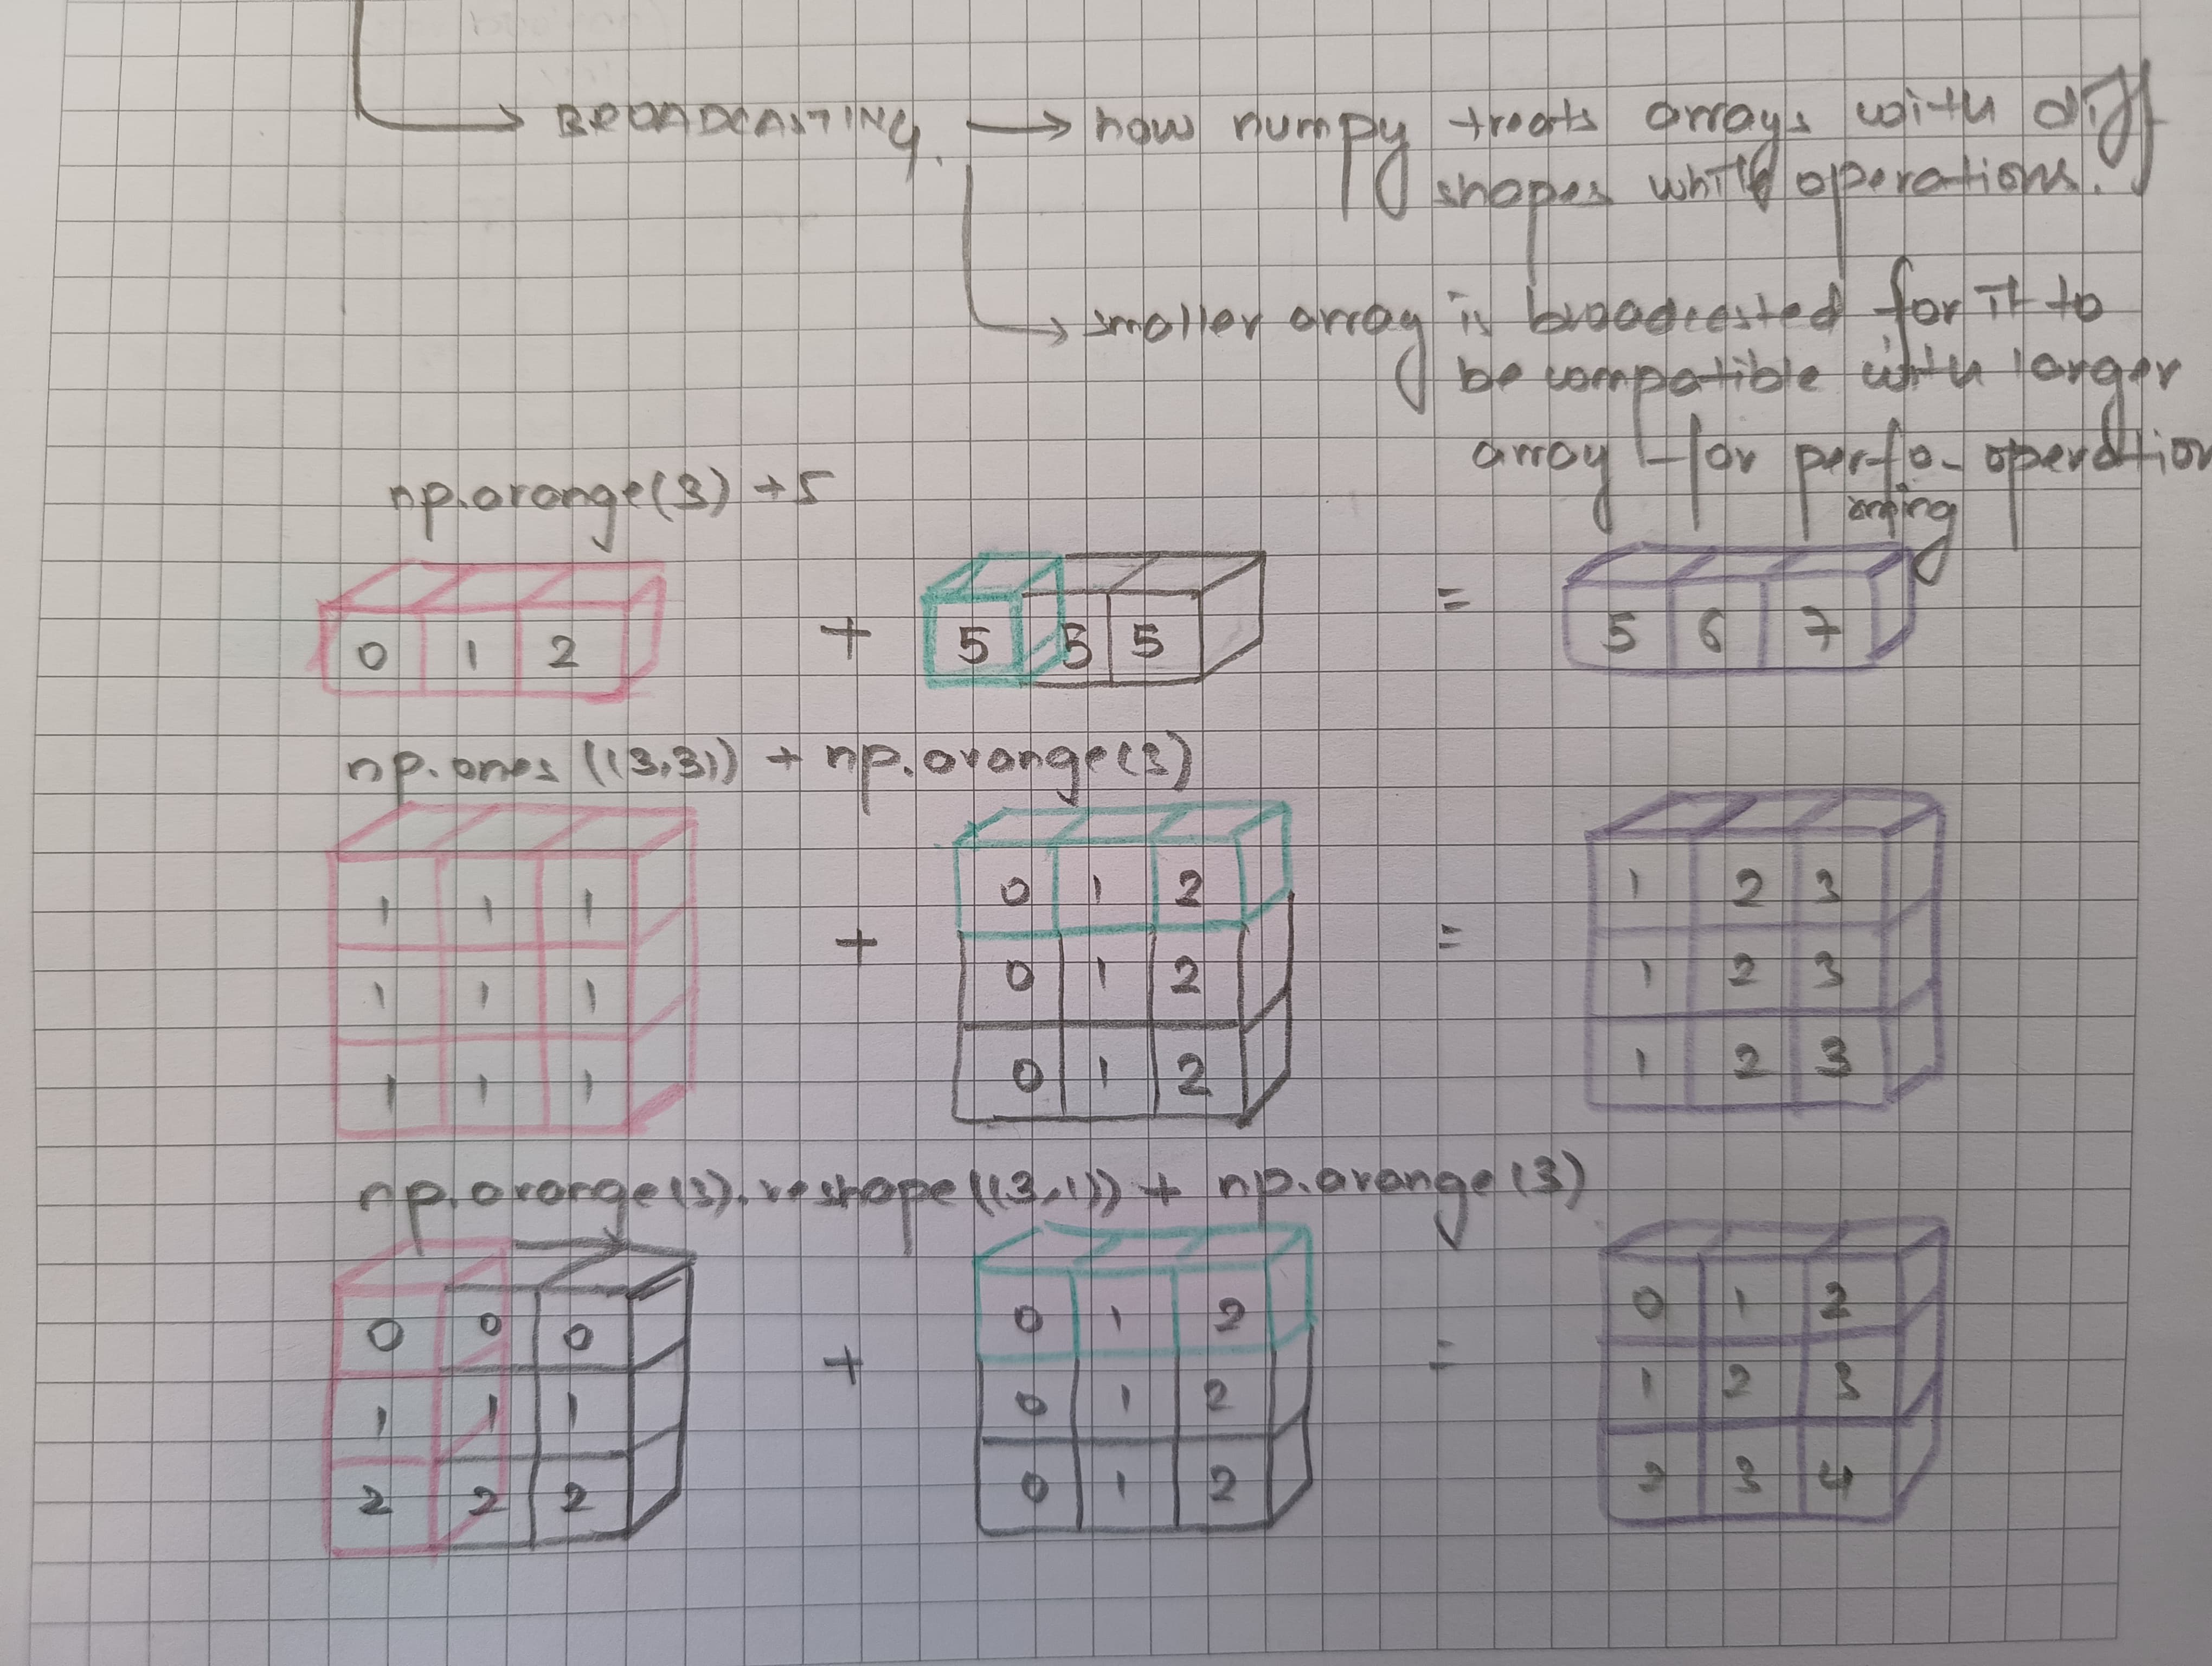 BROADCASTING. → how numpy treats arrays with diff
shapes while operations.
→ smaller array is broadcasted for it to
be compatible with larger
array for perfo- operation
orming
np.arange(3) + 5
0 1 2 + 5 5 5 = 5 6 7
np.ones((3,3)) + np.arange(3)
1 1 1 0 1 2 1 2 3
1 1 1 + 0 1 2 = 1 2 3
1 1 1 0 1 2 1 2 3
np.arange(3).reshape((3,1)) + np.arange(3)
0 0 0 0 1 2 0 1 2
1 1 1 + 0 1 2 = 1 2 3
2 2 2 0 1 2 2 3 4